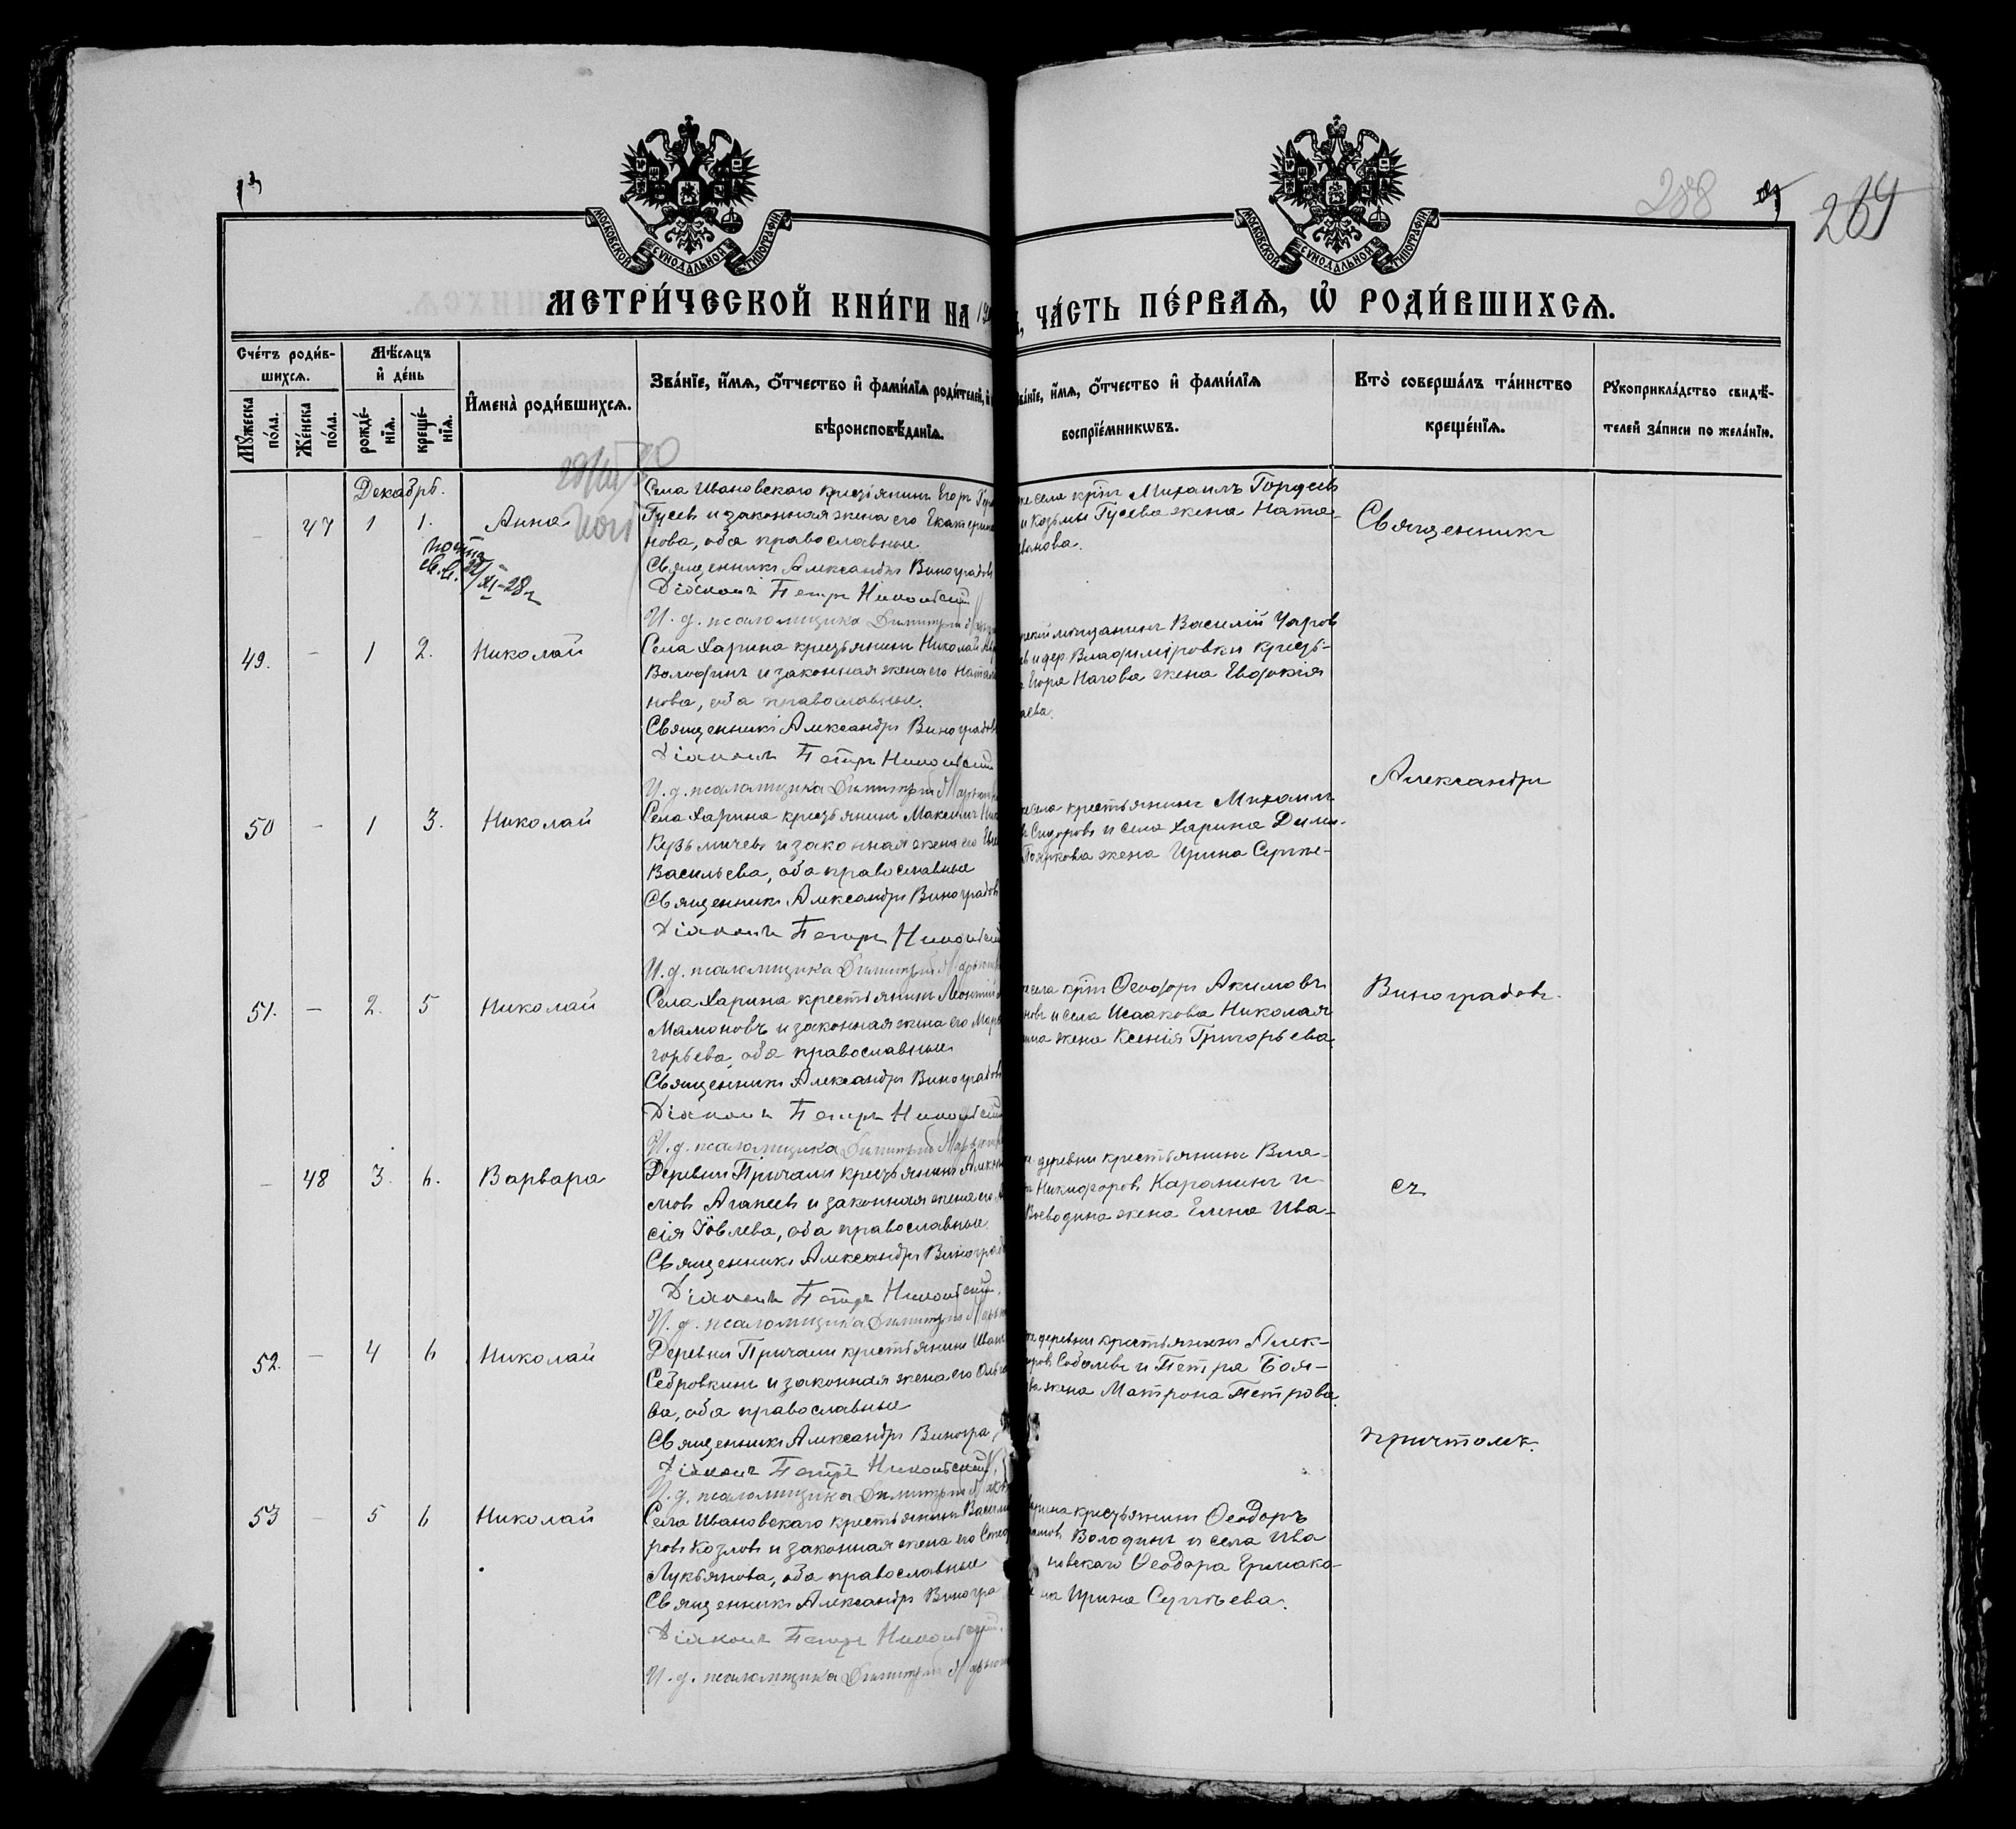 МОСКОВСКОЙ СѴНОДАЛЬНОЙ ТИПОГРАФІИ
МОСКОВСКОЙ СѴНОДАЛЬНОЙ ТИПОГРАФІИ
288
264
МЕТРИ́ЧЕСКОЙ КНИ́ГИ НА
ЧА́СТЬ ПЕ́РВАѦ, Ѡ҆ РОДИ́ВШИХСѦ.
Сче́тъ роди́в-
шихсѧ.
Мꙋ́жеска
по́ла.
Же́нска
по́ла.
Мѣ́сѧцъ
и҆ де́нь
рожде́-
нїѧ.
креще́-
нїѧ.
И҆мена̀ роди́вшихсѧ.
Зва́нїе, и҆́мѧ, ѻ҆́тчество и҆ фами́лїѧ роди́телей, и҆
вѣроисповѣ́данїѧ.
Зва́нїе, и҆́мѧ, ѻ҆́тчество и҆ фами́лїѧ
воспрїе́мникѡвъ.
Кто̀ соверша́лъ та́инство
креще́нїѧ.
Рꙋкоприкла́дство свидѣ́-
телей за́писи по жела́нїю.
Декабрь.
47 1 1. Анна
Села Ивановскаго крестьянинъ Егоръ
Гусевъ и законная жена его Екатерина
нова, оба православные
Священникъ Александръ Виноградовъ
Діаконъ Петръ
И. д. псаломщика Димитрій
же села крт. Михаилъ Гордеевъ
и Козьмы Гусева жена Ната-
Иванова.
Священникъ
49. – 1 2. Николай
Села Харина крестьянинъ Николай
Володинъ и законная жена его Ната
нова, оба православные.
Священникъ Александръ Виноградовъ
Діаконъ Петръ
И. д. псаломщика Димитрій
мѣщанинъ Василій Чаров
и дер. Владиміровки кресть-
Егора Нагова жена Евдокія
аева.
Александръ
50 – 1 3. Николай
Села Харина крестьянинъ Максимъ
Кузьмичевъ и законная жена его
Васильева, оба православные
Священникъ Александръ Виноградовъ
Діаконъ Петръ
И. д. псаломщика Димитрій
села крестьянинъ Михаилъ
Сидоровъ и села Харина Дими-
Пояркова жена Ирина Сергѣе-
51. – 2. 5 Николай
Села Харина крестьянинъ Леонтій
Мамоновъ и законная жена его Мар
горьева, оба православные
Священникъ Александръ Виноградовъ
Діаконъ Петръ
И. д. псаломщика Димитрій
села крт. Ѳеодоръ Акимовъ
новъ и села Исакова Николая
жена Ксенія Григорьева
Виноградовъ.
– 48 3. 6. Варвара
Деревни Причали крестьянинъ Алек
мовъ Агапеевъ и законная жена его
сія Іовлева, оба православные
Священникъ Александръ Виногра
Діаконъ Петръ
И. д. псаломщика Димитрій
деревни крестьянинъ Вла-
Никифоровъ Каранинъ и
Воеводина жена Елена Ива-
съ
52. – 4 6 Николай
Деревни Причали крестьянинъ Иванъ
Себровкинъ и законная жена его Ольга
ва, оба православные
Священникъ Александръ Виногра
Діаконъ Петръ
И. д. псаломщика Димитрій
деревни крестьянинъ Алек-
Соболевъ и Петра Боя-
жена Матрона Петрова.
причтомъ.
53 – 5 6 Николай
Села Ивановскаго крестьянинъ Васил
ровъ Козловъ и законная жена его
Лукьянова, оба православные
Священникъ Александръ Виногра
Діаконъ Петръ
И. д. псаломщика Димитрій
Харина крестьянинъ Ѳеодоръ
Володинъ и села Ива
новскаго Ѳеодора Ермако-
на Ирина Сергѣева.